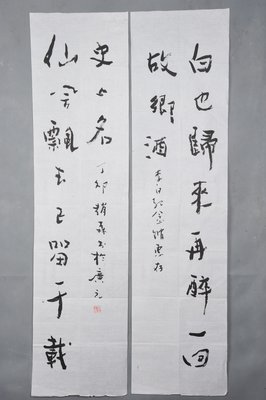 白也歸來再醉一回
故鄉酒
李白紀念館惠存
仙兮飄去已留千載
史上名
丁卯 趙 書於廣元